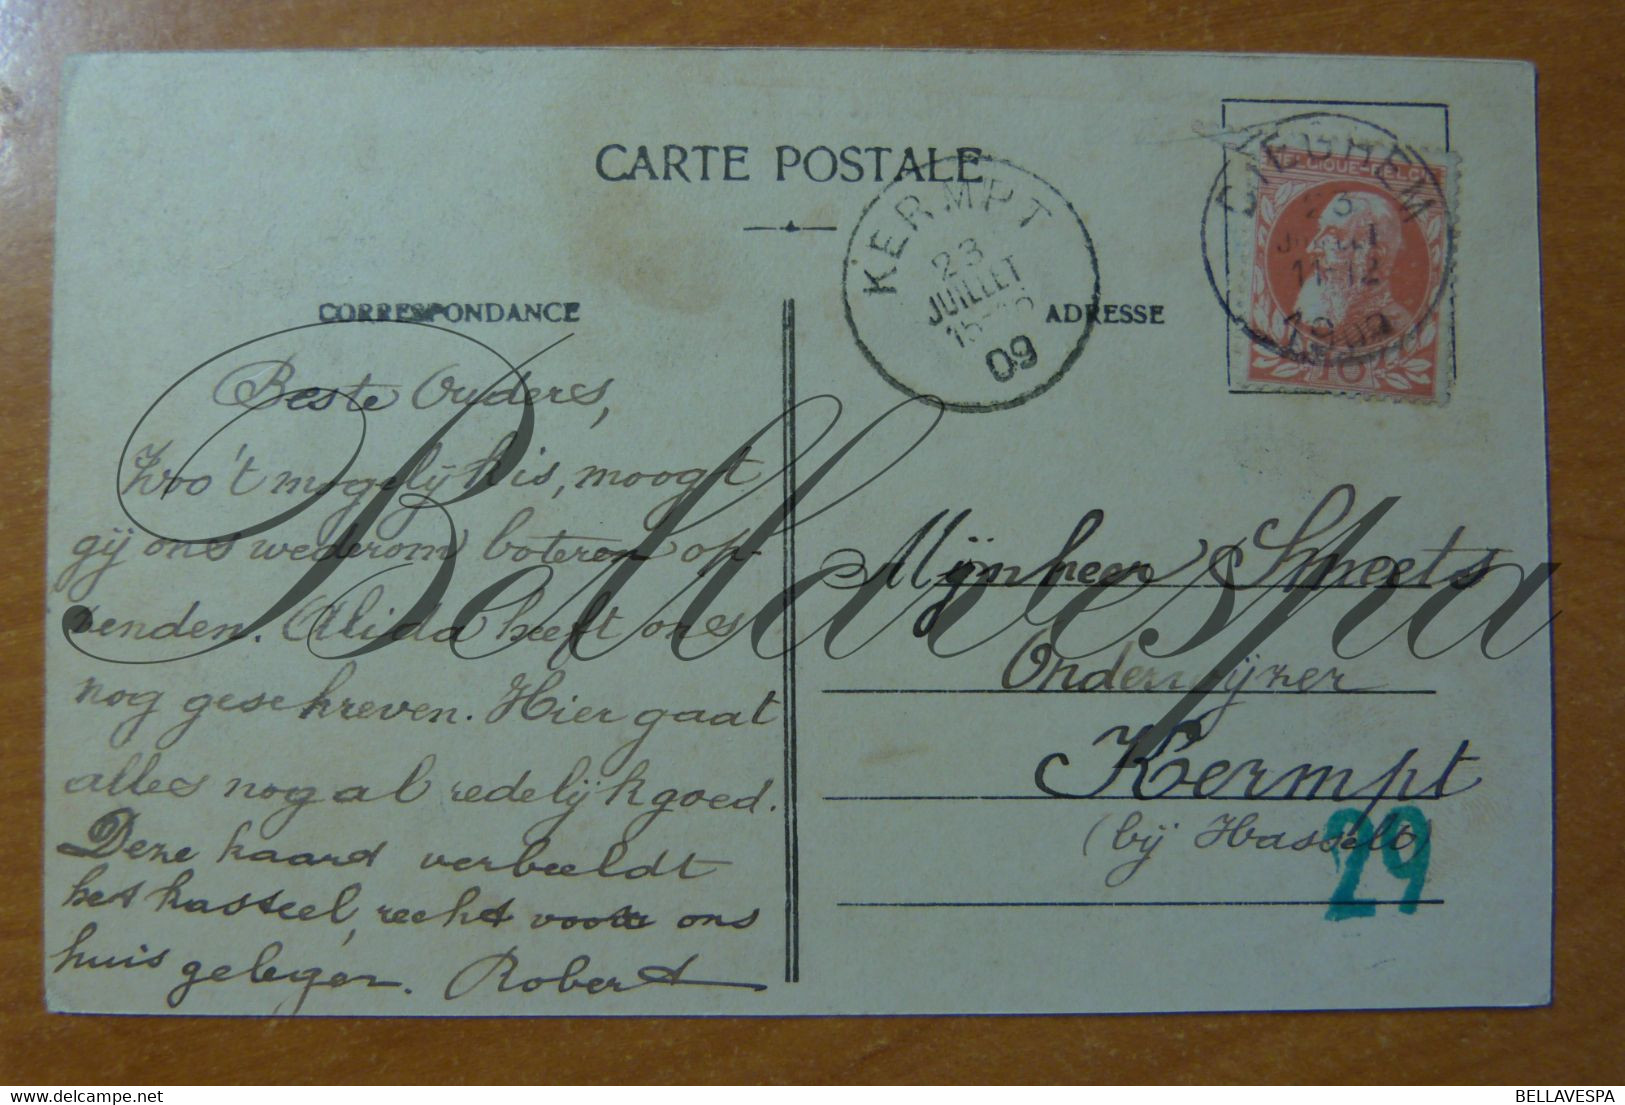 CARTE POSTALE
CORRESPONDANCE
ADRESSE
KERMPT
23
JUILLET
15-
09
23
JUILLET
11-12
1909
Beste Ouders,
Zoo 't mogelijk is, moogt
gij ons wederom boteren op-
zenden. Alida heeft ons
nog geschreven. Hier gaat
alles nog al redelijk goed.
Deze kaard verbeeldt
het kasteel, recht voor ons
huis gelegen. Robert
Mijnheer Smeets
Onderwijzer
Kermpt
(bij Hasselt)
29
Bellavespa
BELLAVESPA